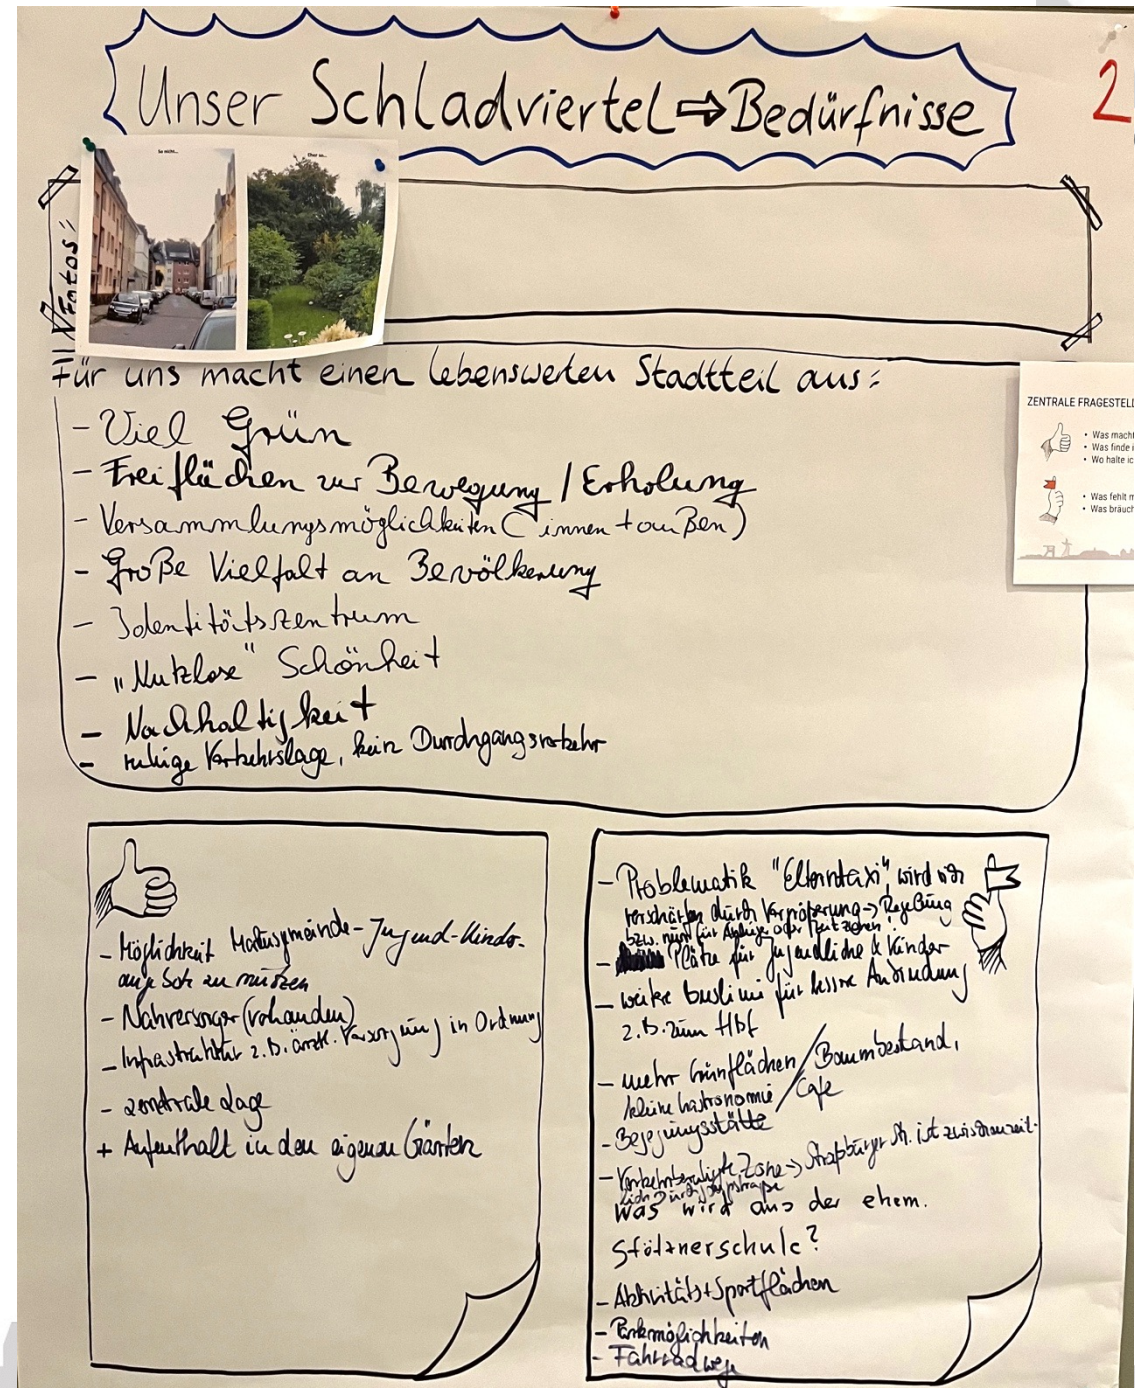 Unser Schladviertel ⇨ Bedürfnisse
2
So nicht...
Eher so...
Fotos:
Für uns macht einen lebenswerten Stadtteil aus:
- Viel Grün
- Freiflächen zur Bewegung / Erholung
- Versammlungsmöglichkeiten (innen + außen)
- Große Vielfalt an Bevölkerung
- Identitätszentrum
- „Nutzlose" Schönheit
- Nachhaltigkeit
- ruhige Verkehrslage, kein Durchgangsverkehr
ZENTRALE FRAGESTELL
• Was macht
• Was finde i
• Wo halte ic
• Was fehlt m
• Was bräuch
- Möglichkeit Matthäusgemeinde-Jugend-Kinder-
angebote zu nutzen
- Nahversorger (vorhanden)
- Infrastruktur z.B. ärztl. Versorgung in Ordnung
- zentrale Lage
+ Aufenthalt in den eigenen Gärten
- Problematik "Elterntaxi", wird sich
verschärfen durch Vergrößerung -> Regelung
bzw. nur für Anlieger oder Zeitzonen!
- Plätze für Jugendliche & Kinder
- weitere Buslinie für bessere Anbindung
z.B. zum Hbf
- mehr Grünflächen / Baumbestand,
kleine Gastronomie / Cafe
- Begegnungsstätte
- Verkehrsberuhigte Zone -> Straßburger Str. ist zwischenzeit-
lich Durchgangsstraße
Was wird aus der ehem.
Stötznerschule?
- Aktivitäts+Sportflächen
- Parkmöglichkeiten
- Fahrradwege